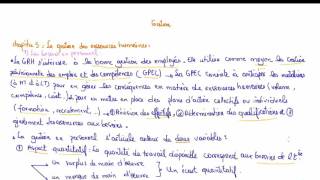 Gestion
chapitre 5 : La gestion des ressources humaines :
1) Les besoins en personnel
La GRH s'intéresse à la bonne gestion des employés. Elle utilise comme moyen la Gestion
prévisionnelle des emplois et des compétences (GPEC). La GPEC consiste à anticiper les mutations
(à MT à LT) pour en gérer les conséquences en matière de ressources humaines (volume,
compétence, coût..), pour mettre en place des plans d'action collectifs ou individuels
(formation, recrutement...) → ① Prévision des effectifs ② Détermination des qualifications et ③
ajustement des ressources aux besoins.
La gestion en personnel s'articule autour de deux variables :
① Aspect quantitatif : La quantité de travail disponible correspond aux besoins de l'Ese
un surplus de main d'œuvre
un manque de main d'œuvre
Un écart quantitatif